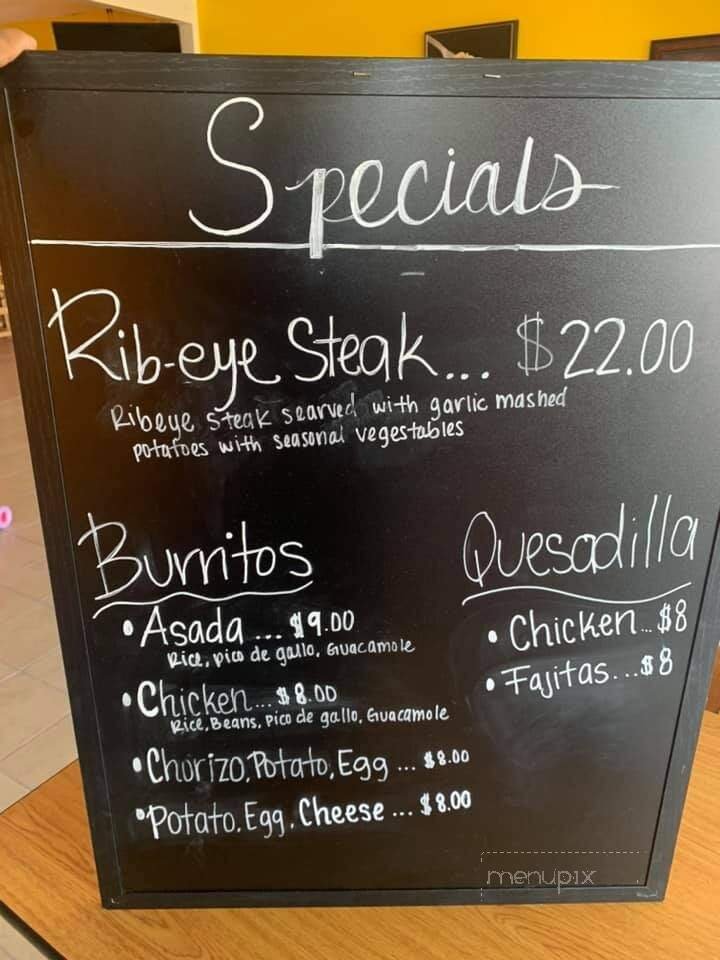 Specials
Rib-eye Steak... $22.00
Ribeye steak searved with garlic mashed
potatoes with seasonal vegestables
Burritos
•Asada ... $9.00
Rice, pico de gallo, Guacamole
•Chicken... $8.00
Rice, Beans, pico de gallo, Guacamole
•Chorizo, Potato, Egg ... $8.00
•Potato, Egg, Cheese ... $8.00
Quesadilla
• Chicken... $8
• Fajitas... $8
menupix